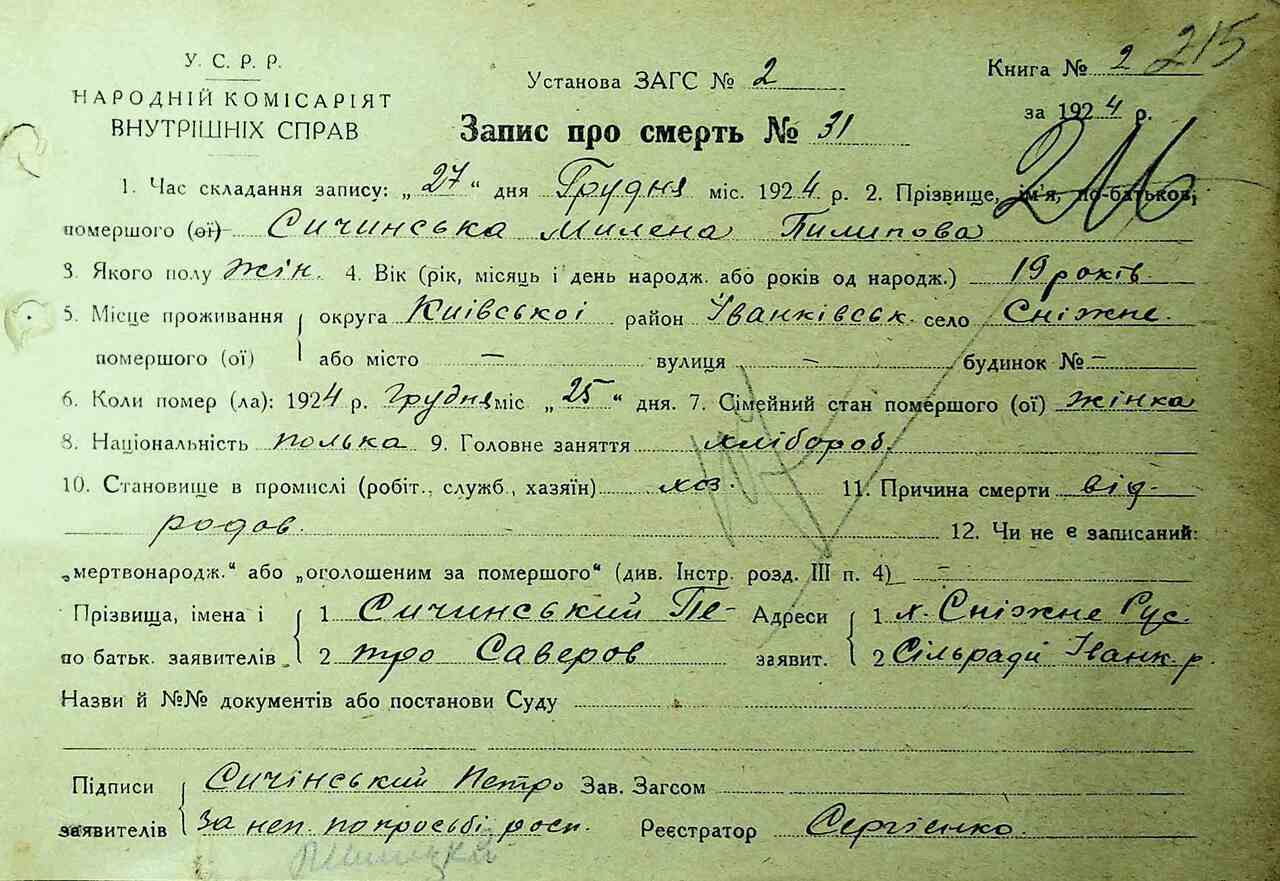 У. С. Р. Р.
НАРОДНІЙ КОМІСАРІЯТ
ВНУТРІШНІХ СПРАВ
Установа ЗАГС № 2
Книга № 2 215
за 1924 р.
216
Запис про смерть № 31
1. Час складання запису: „27“ дня Грудня міс. 1924 р. 2. Прізвище, ім'я, по-батькові,
помершого (ої) Сичинська Милена Пилипова
3. Якого полу жін. 4. Вік (рік, місяць і день народж. або років од народж.) 19 років
5. Місце проживання округа Київської район Іванківськ. село Сніжне
помершого (ої) або місто — вулиця — будинок № —
6. Коли помер (ла): 1924 р. грудня міс „25“ дня. 7. Сімейний стан помершого (ої) жінка
8. Національність полька 9. Головне заняття хлібороб.
10. Становище в промислі (робіт., служб., хазяїн) хоз. 11. Причина смерти від
родов. 12. Чи не є записаний:
„мертвонародж.“ або „оголошеним за помершого“ (див. Інстр. розд. III п. 4) —
Прізвища, імена і 1 Сичинський Пе- Адреси 1 х. Сніжне Рус.
по батьк. заявителів 2 тро Саверов заявит. 2 Сільради Іванк. р.
Назви й №№ документів або постанови Суду
Підписи Сичінський Петро Зав. Загсом
заявителів За неп. попросьбі росп. Реєстратор Сергієнко.